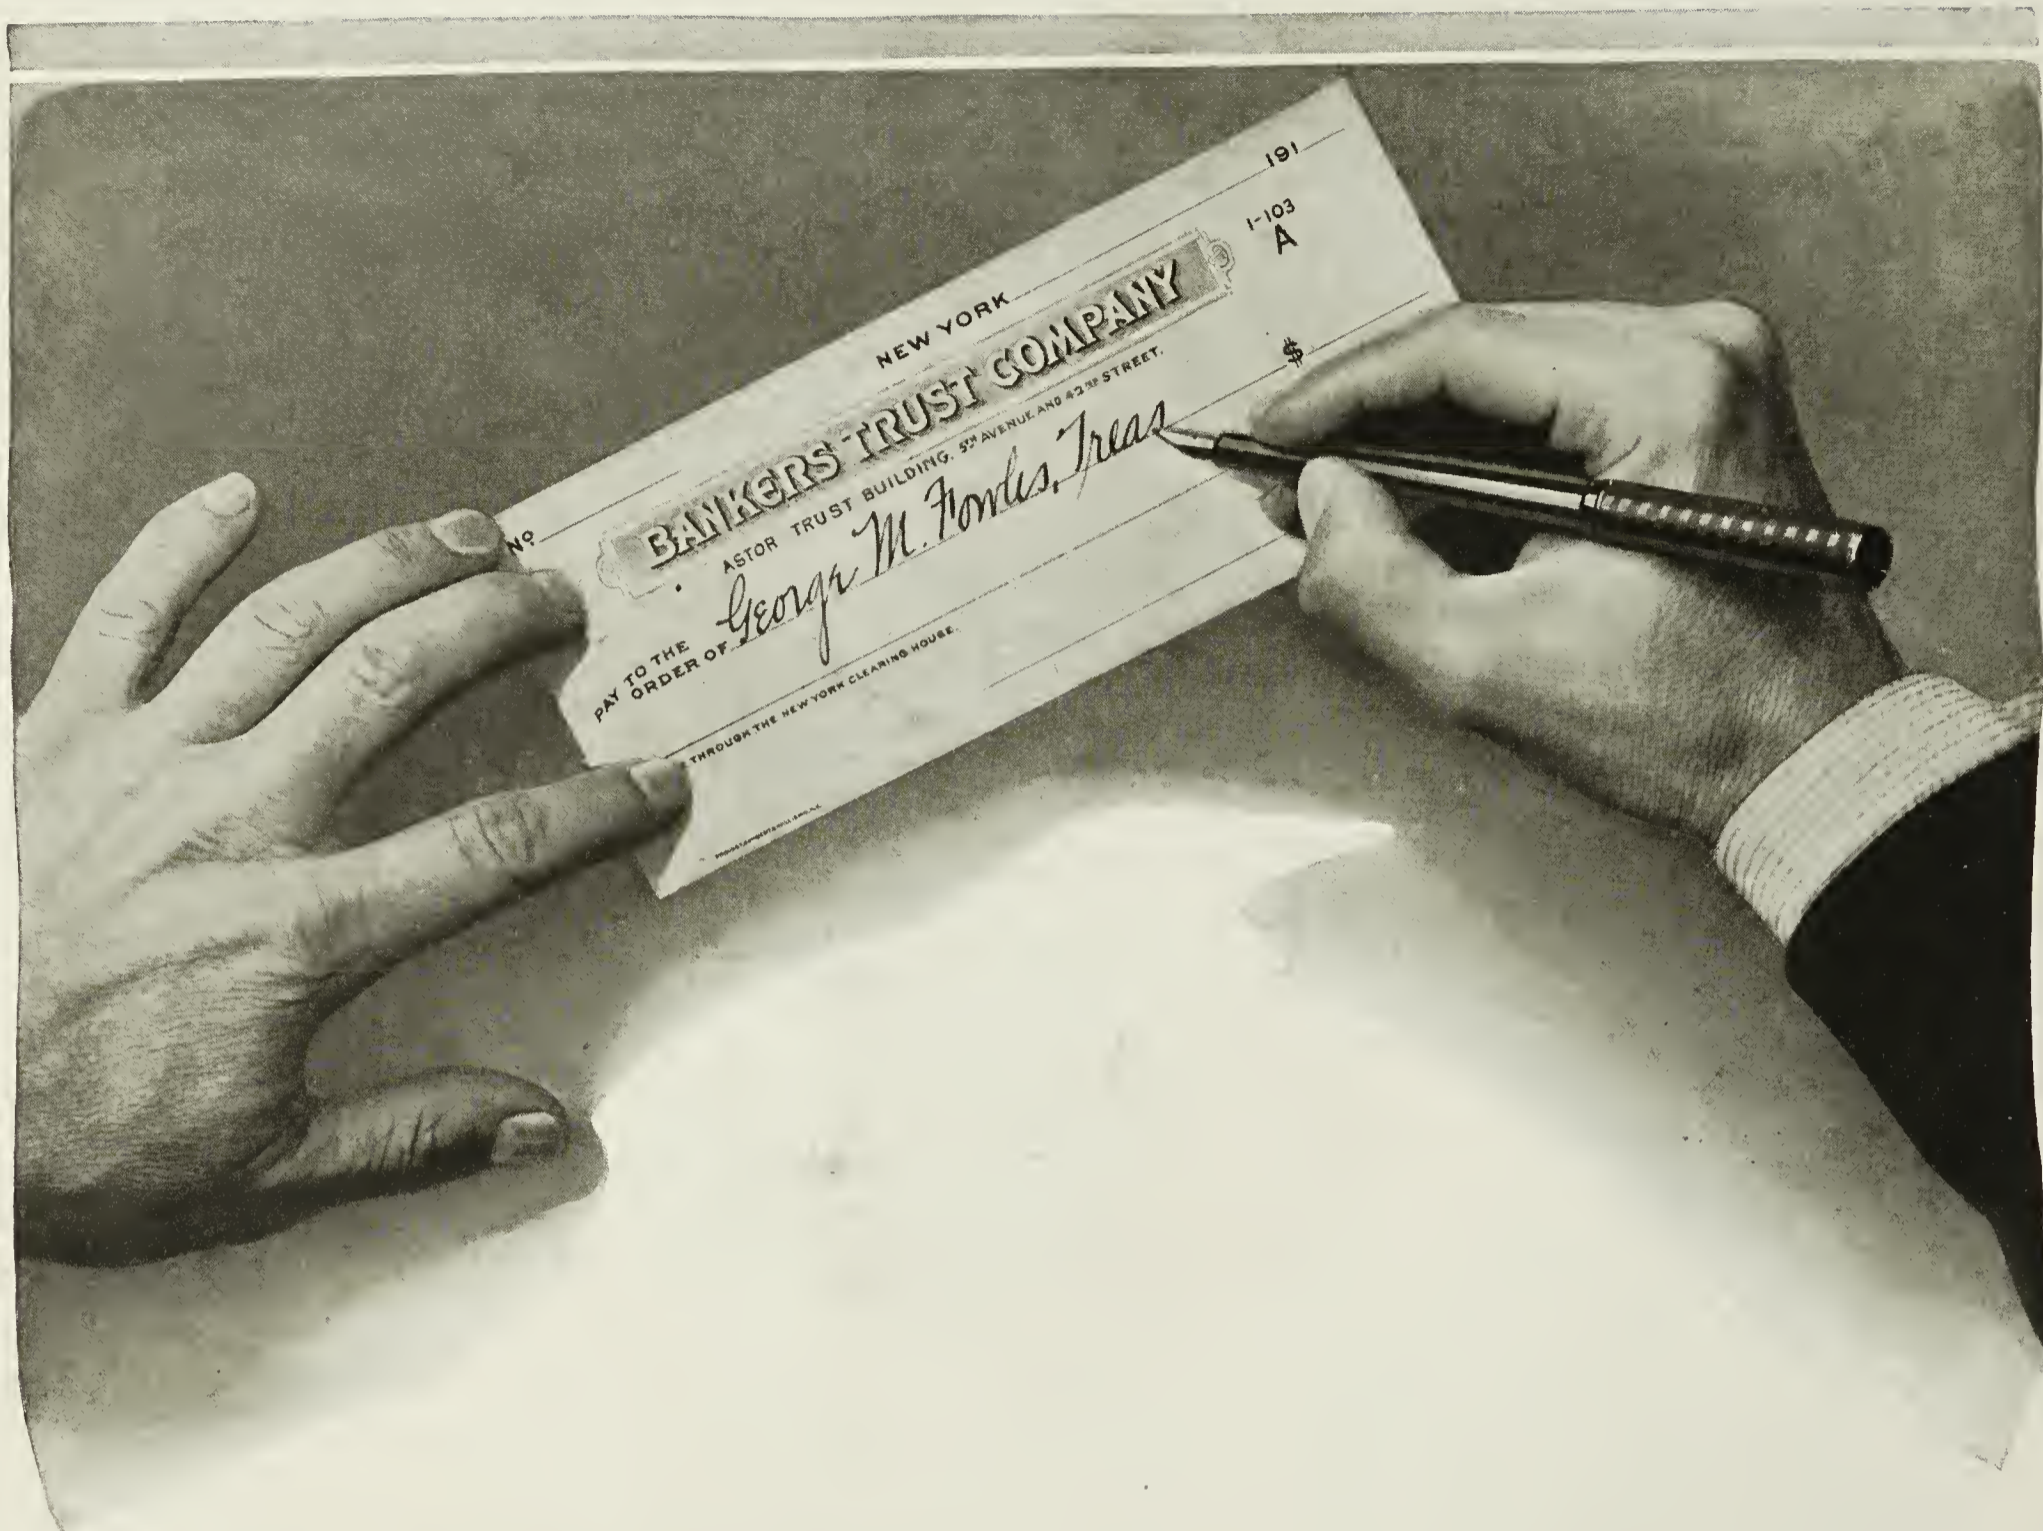 191
NEW YORK
1-103
A
Nº
BANKERS TRUST COMPANY
ASTOR TRUST BUILDING, 5TH AVENUE AND 42ND STREET.
$
PAY TO THE
ORDER OF George M. Fowles, Treas
THROUGH THE NEW YORK CLEARING HOUSE.